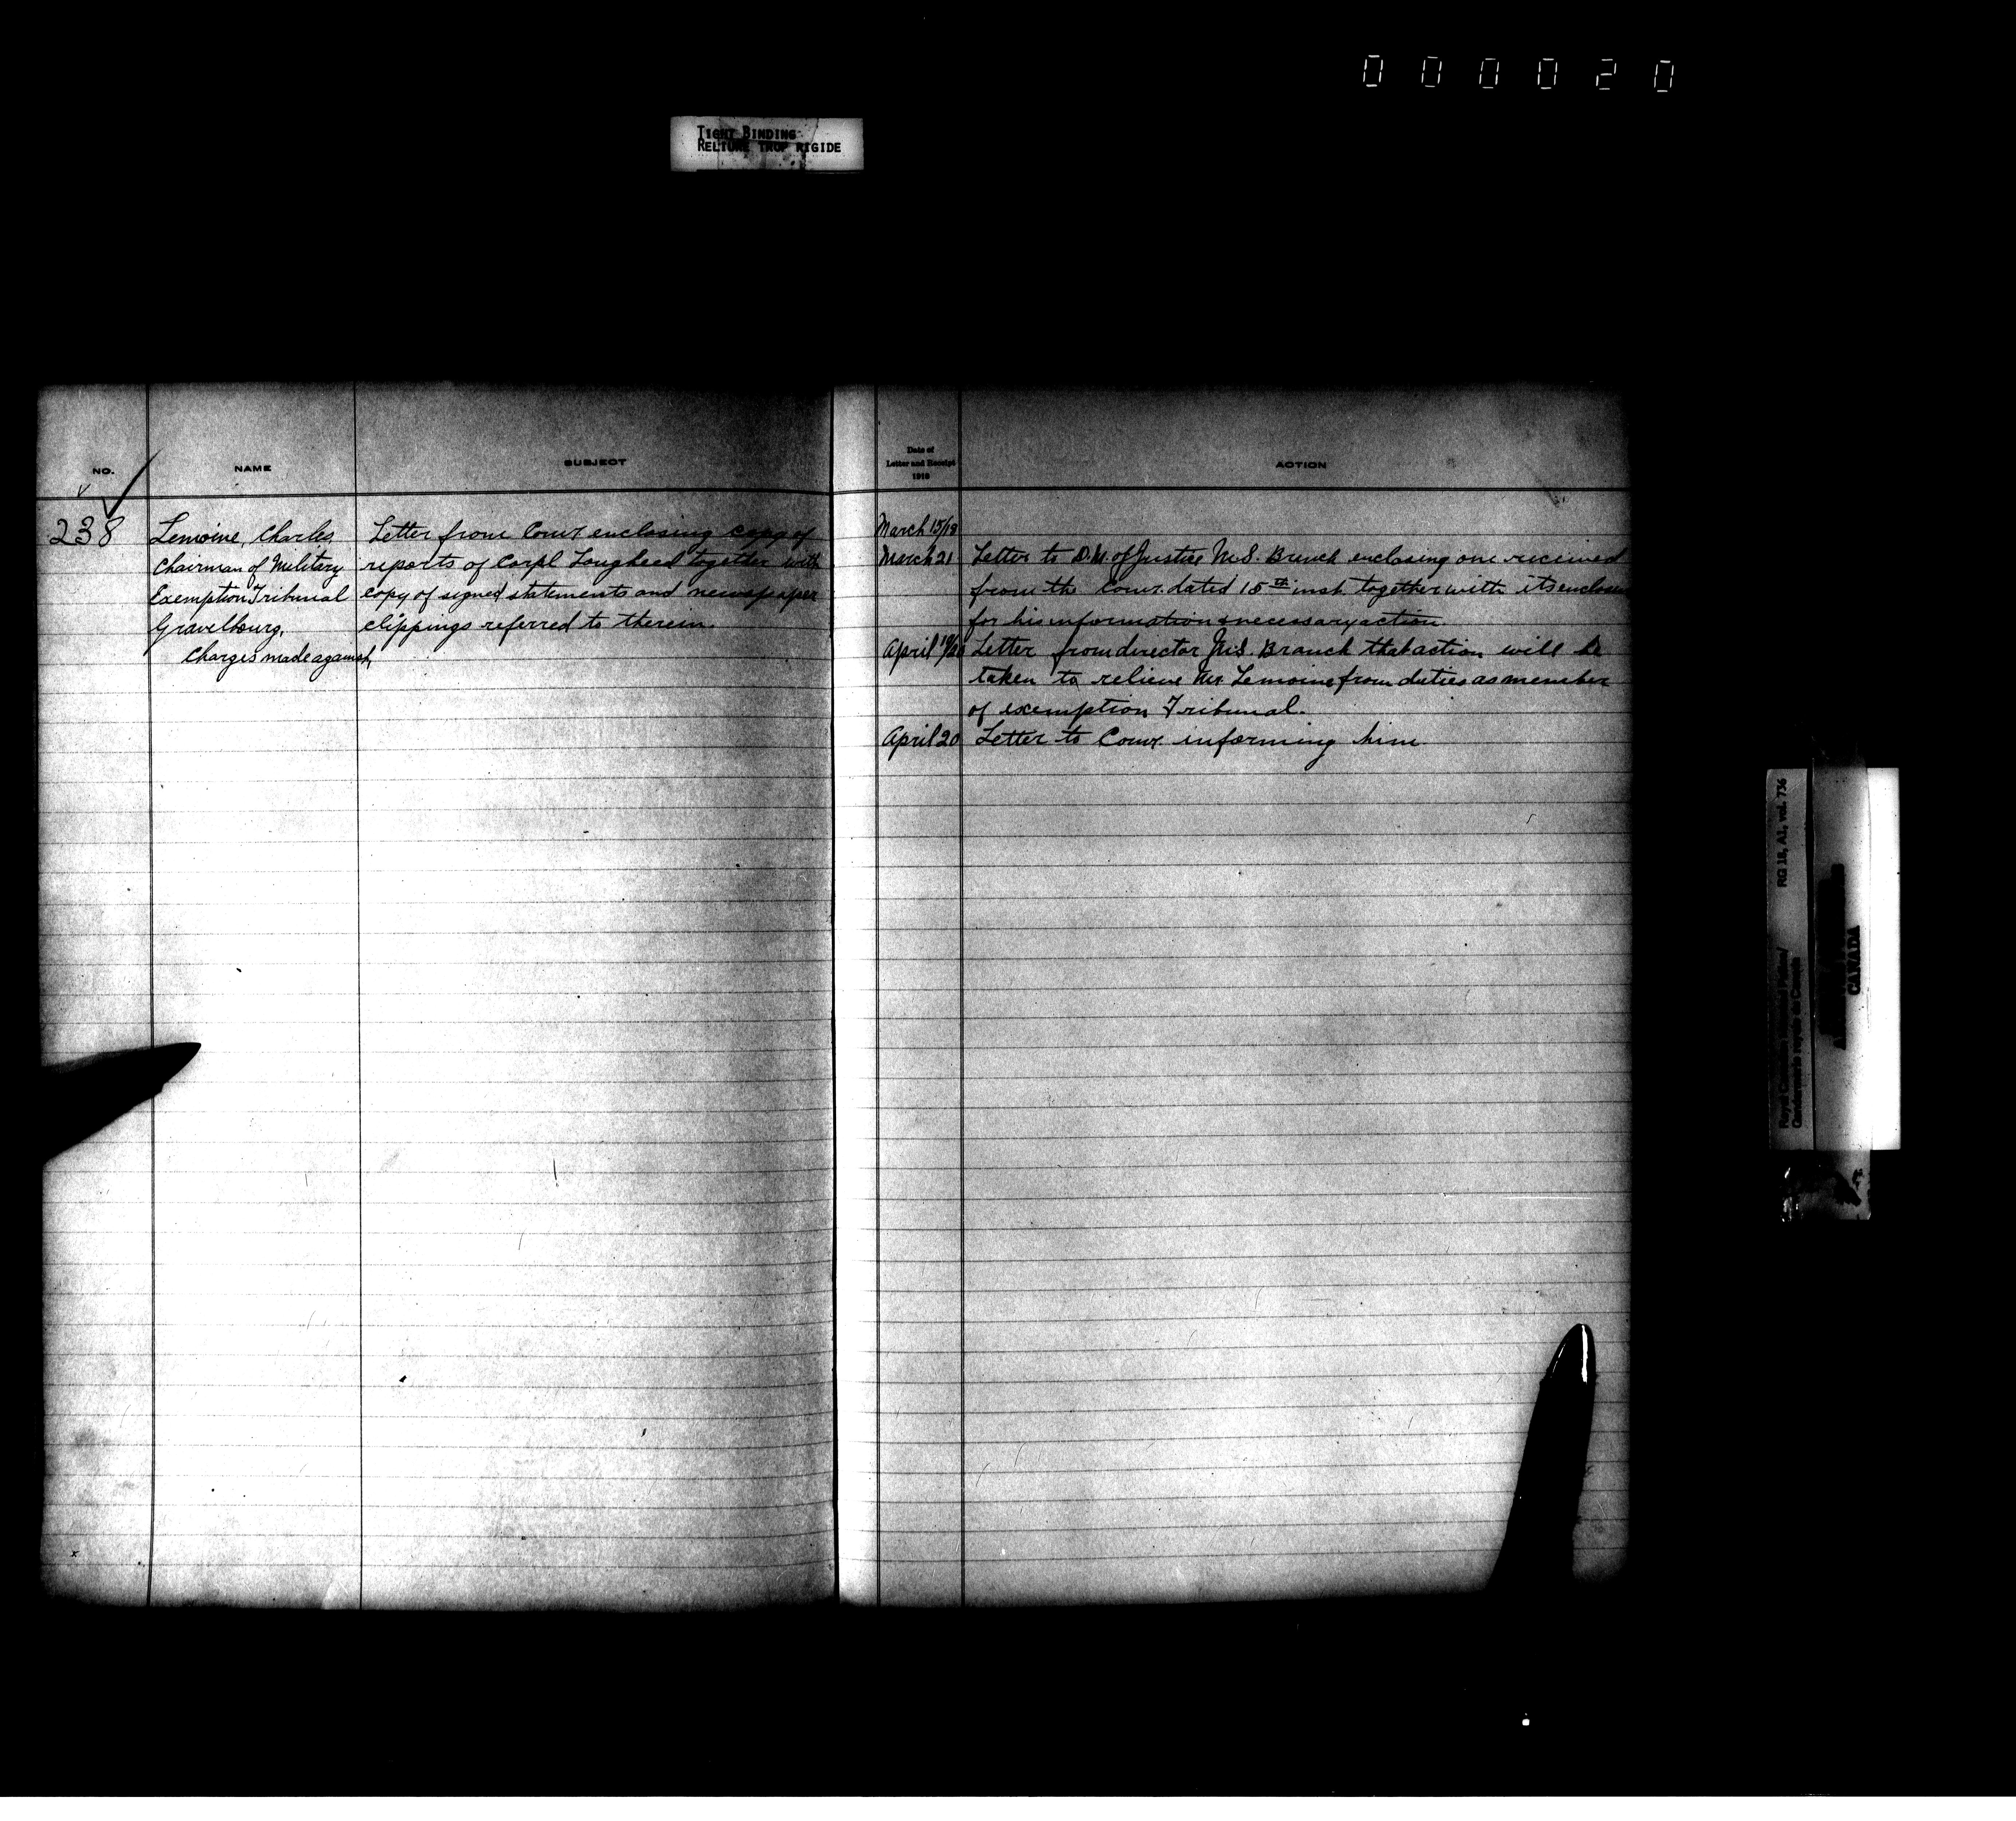 000020
TIGHT BINDING
RELIURE TROP RIGIDE
NO.
NAME
SUBJECT
238
Lemoine, Charles
Chairman of Military
Exemption Tribunal
Gravelbourg,
Charges made against,
Letter from Comr enclosing copy of
reports of Corpl Lougheed together with
copy of signed statements and newspaper
clippings referred to therein.
Date of
Letter and Receipt
1918
ACTION
March 15/18
March 21 Letter to D.M. of Justice M.S. Branch enclosing one received
from the Comr. dated 15th inst. together with its
for his information & necessary action.
April 19/20 Letter from director M.S. Branch that action will be
taken to relieve Mr. Lemoine from duties as member
of exemption Tribunal.
April 20 Letter to Comr. informing him
RG 18, A1, vol. 736
Royal Canadian Mounted Police/
Gendarmerie royale du Canada
CANADA